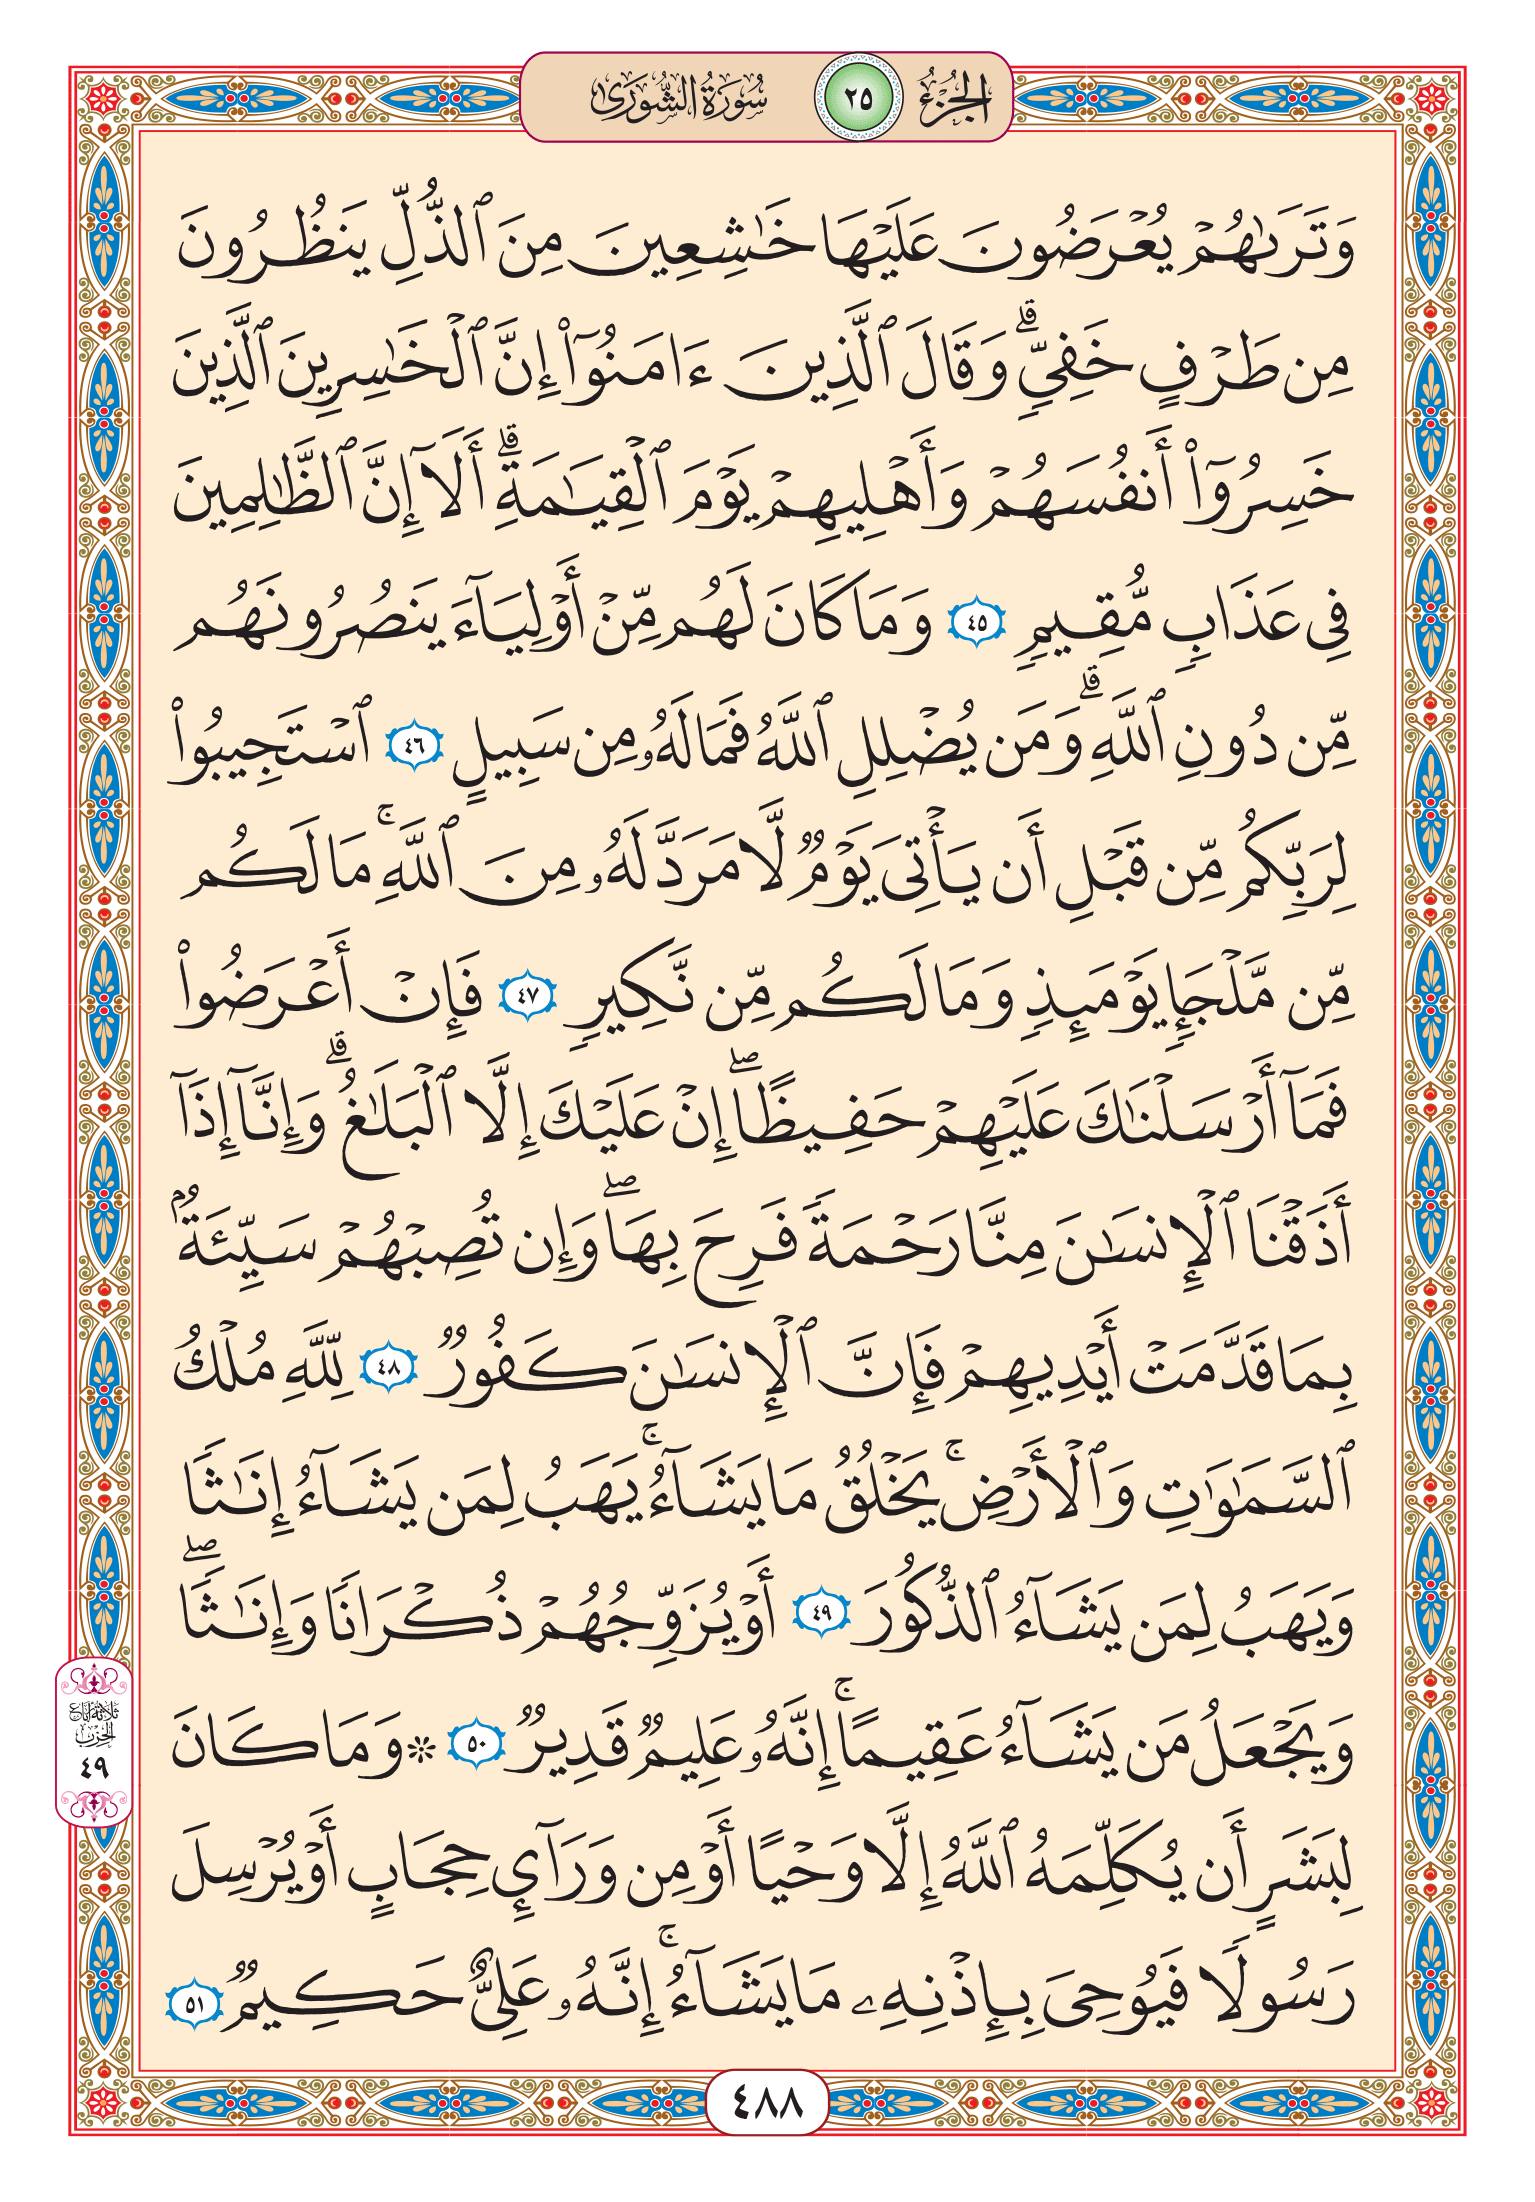 الجزء ٢٥ سورة الشورى
وَتَرَىٰهُمۡ يُعۡرَضُونَ عَلَيۡهَا خَٰشِعِينَ مِنَ ٱلذُّلِّ يَنظُرُونَ
مِن طَرۡفٍ خَفِيّٖۗ وَقَالَ ٱلَّذِينَ ءَامَنُوٓاْ إِنَّ ٱلۡخَٰسِرِينَ ٱلَّذِينَ
خَسِرُوٓاْ أَنفُسَهُمۡ وَأَهۡلِيهِمۡ يَوۡمَ ٱلۡقِيَٰمَةِۗ أَلَآ إِنَّ ٱلظَّٰلِمِينَ
فِي عَذَابٖ مُّقِيمٖ ٤٥ وَمَا كَانَ لَهُم مِّنۡ أَوۡلِيَآءَ يَنصُرُونَهُم
مِّن دُونِ ٱللَّهِۗ وَمَن يُضۡلِلِ ٱللَّهُ فَمَا لَهُۥ مِن سَبِيلٍ ٤٦ ٱسۡتَجِيبُواْ
لِرَبِّكُم مِّن قَبۡلِ أَن يَأۡتِيَ يَوۡمٞ لَّا مَرَدَّ لَهُۥ مِنَ ٱللَّهِۚ مَا لَكُم
مِّن مَّلۡجَإٖ يَوۡمَئِذٖ وَمَا لَكُم مِّن نَّكِيرٖ ٤٧ فَإِنۡ أَعۡرَضُواْ
فَمَآ أَرۡسَلۡنَٰكَ عَلَيۡهِمۡ حَفِيظًاۖ إِنۡ عَلَيۡكَ إِلَّا ٱلۡبَلَٰغُۗ وَإِنَّآ إِذَآ
أَذَقۡنَا ٱلۡإِنسَٰنَ مِنَّا رَحۡمَةٗ فَرِحَ بِهَاۖ وَإِن تُصِبۡهُمۡ سَيِّئَةُۢ
بِمَا قَدَّمَتۡ أَيۡدِيهِمۡ فَإِنَّ ٱلۡإِنسَٰنَ كَفُورٞ ٤٨ لِّلَّهِ مُلۡكُ
ٱلسَّمَٰوَٰتِ وَٱلۡأَرۡضِۚ يَخۡلُقُ مَا يَشَآءُۚ يَهَبُ لِمَن يَشَآءُ إِنَٰثٗا
وَيَهَبُ لِمَن يَشَآءُ ٱلذُّكُورَ ٤٩ أَوۡ يُزَوِّجُهُمۡ ذُكۡرَانٗا وَإِنَٰثٗاۖ
وَيَجۡعَلُ مَن يَشَآءُ عَقِيمًاۚ إِنَّهُۥ عَلِيمٞ قَدِيرٞ ٥٠ ۞ وَمَا كَانَ
لِبَشَرٍ أَن يُكَلِّمَهُ ٱللَّهُ إِلَّا وَحۡيًا أَوۡ مِن وَرَآيِٕ حِجَابٍ أَوۡ يُرۡسِلَ
رَسُولٗا فَيُوحِيَ بِإِذۡنِهِۦ مَا يَشَآءُۚ إِنَّهُۥ عَلِيٌّ حَكِيمٞ ٥١
ثلاثة أرباع
الحزب
٤٩
٤٨٨